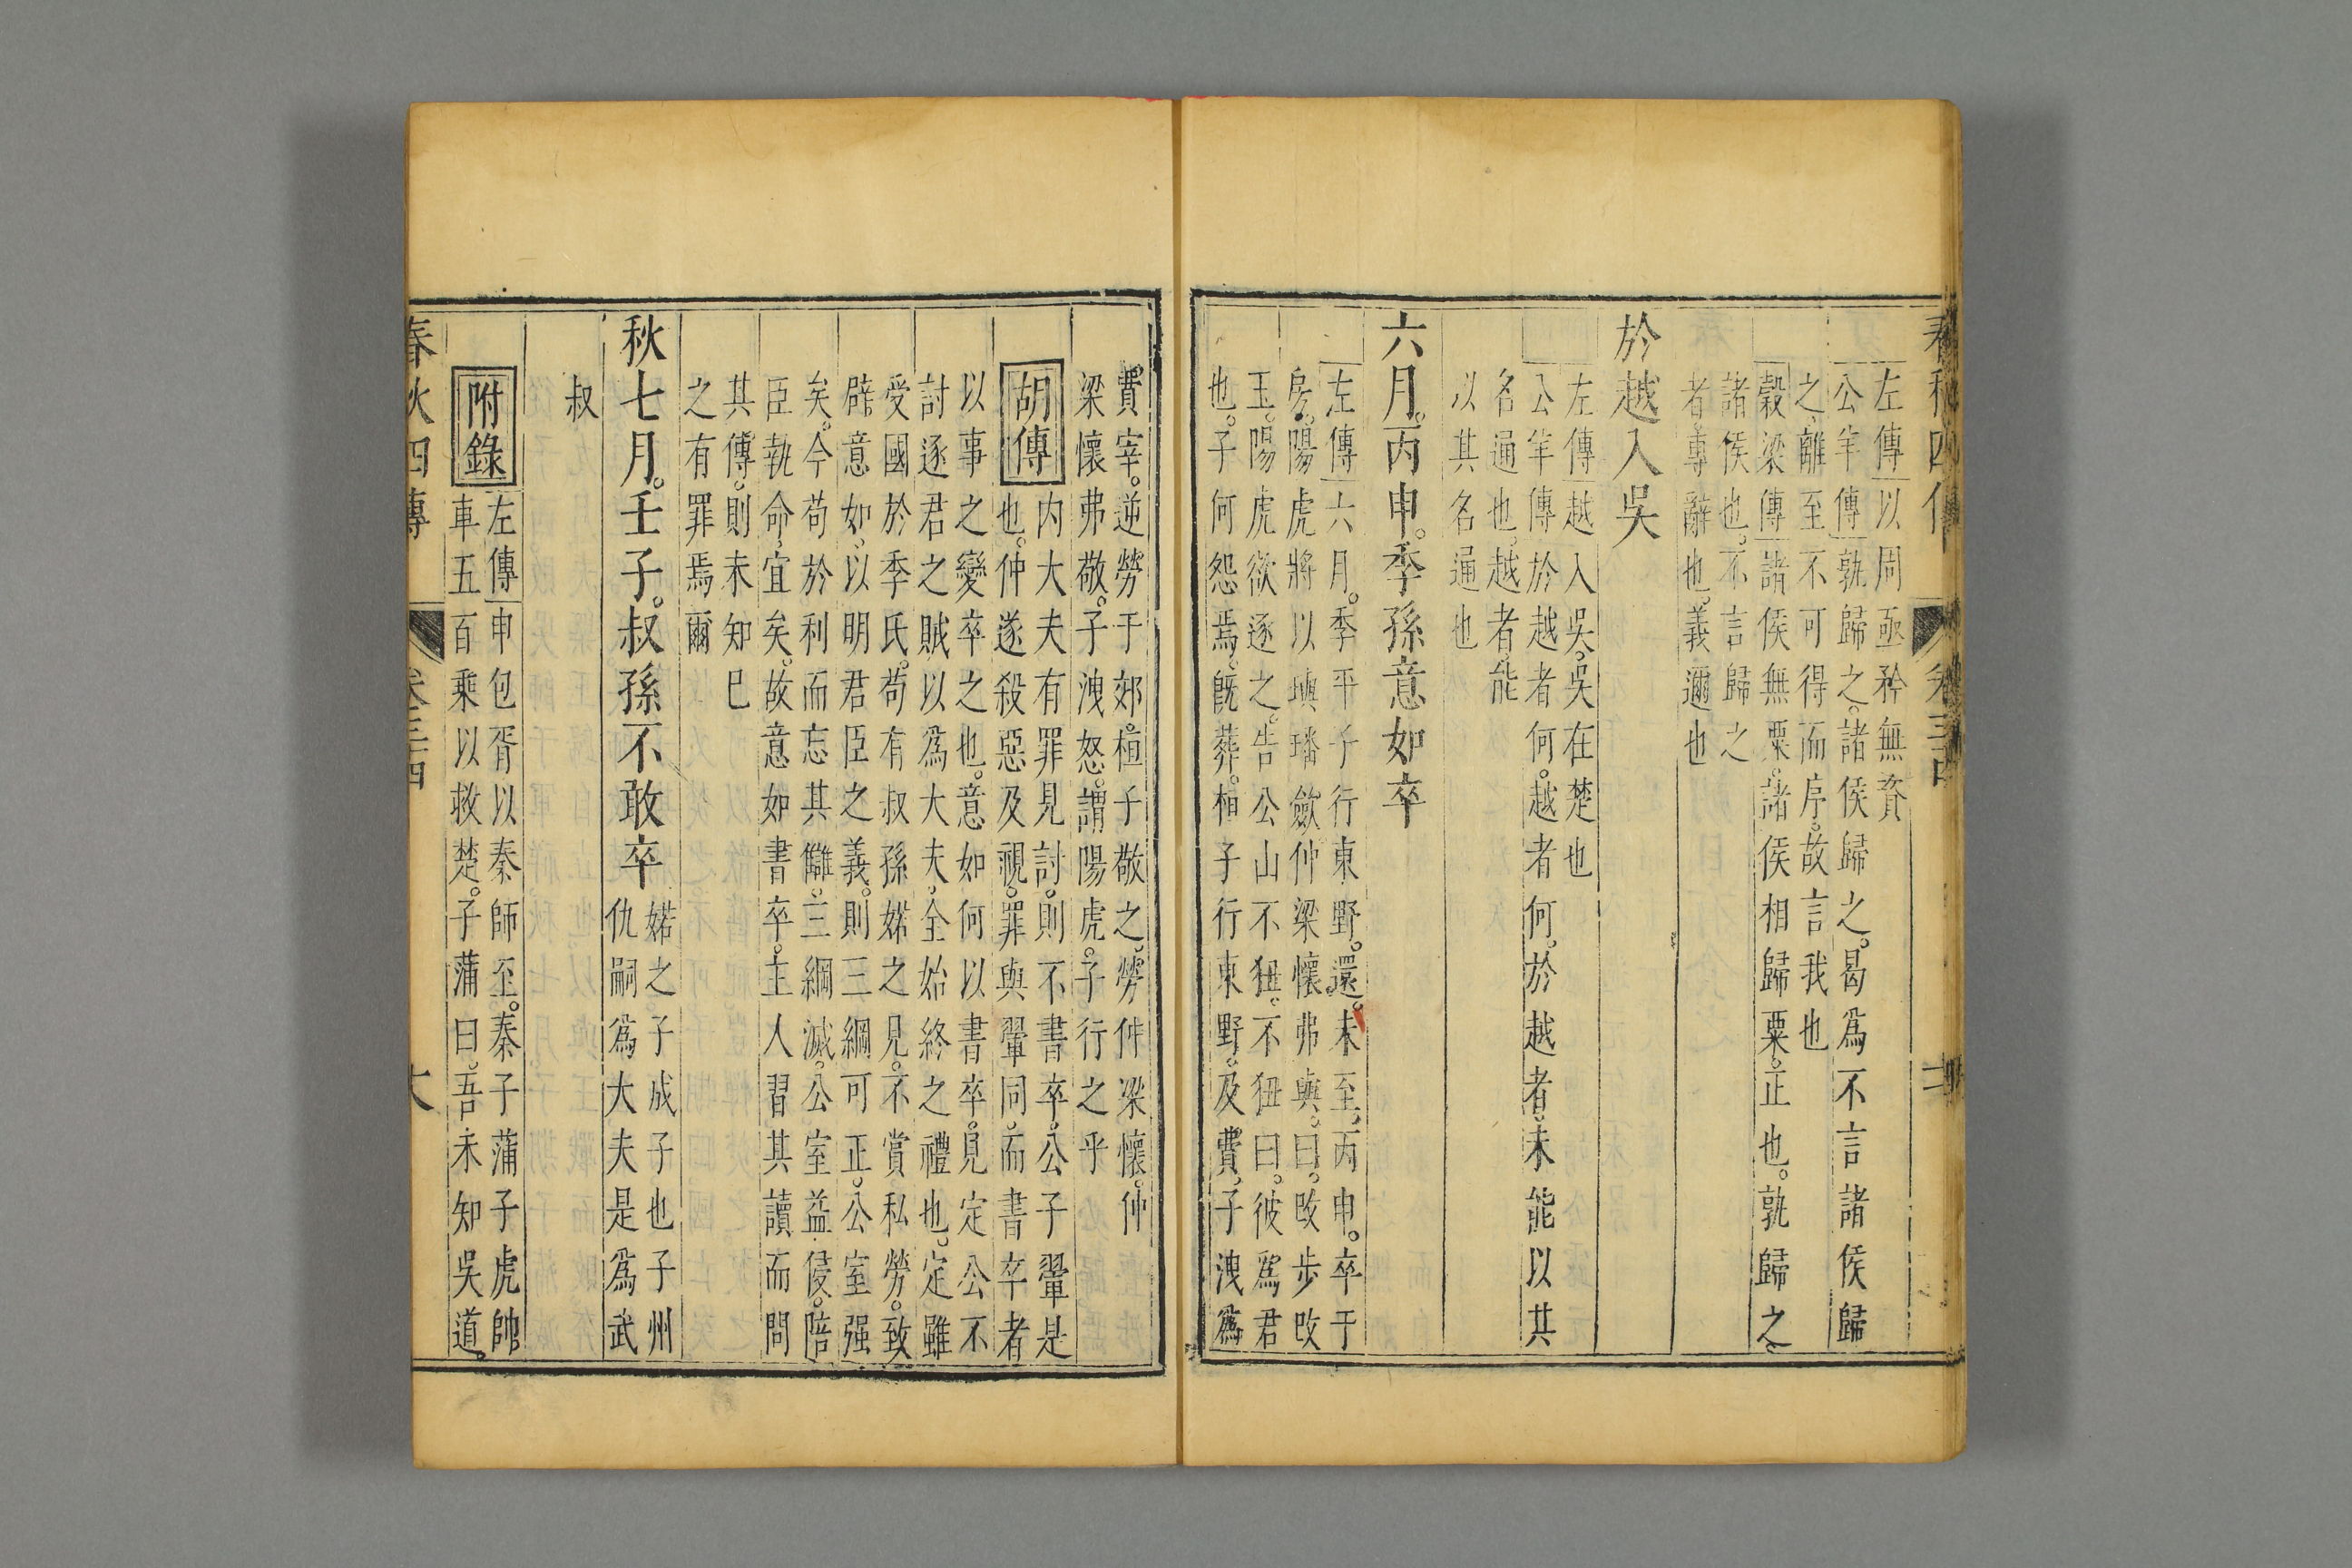 春秋四傳 卷三四
左傳以周亟矜無資
公羊傳孰歸之。諸侯歸之。曷爲不言諸侯歸
之。離至不可得而序。故言我也
穀梁傳諸侯無粟。諸侯相歸粟。正也。孰歸之。
諸侯也。不言歸之
者。專辭也。義邇也
於越入吳
左傳越入吳。吳在楚也
公羊傳於越者何。越者何。於越者。未能以其
名通也。越者。能
以其名通也
六月。丙申。季孫意如卒
左傳六月。季平子行東野。還。未至。丙申。卒于
房。陽虎將以璵璠斂。仲梁懷弗與。曰。改步改
玉。陽虎欲逐之。告公山不狃。不狃曰。彼爲君
也。子何怨焉。旣葬。桓子行東野。及費。子洩爲
費宰。逆勞于郊。桓子敬之。勞仲梁懷。仲
梁懷弗敬。子洩怒。謂陽虎。子行之乎
胡傳 内大夫有罪見討。則不書卒。公子翬是
也。仲遂殺惡及視。罪與翬同。而書卒者
以事之變卒之也。意如何以書卒。見定公不
討逐君之賊。以爲大夫。全始終之禮也。定雖
受國於季氏。苟有叔孫婼之見。不賞私勞。致
辟意如。以明君臣之義。則三綱可正。公室强
矣。今苟於利而忘其讎。三綱滅。公室益侵。陪
臣執命宜矣。故意如書卒。主人習其讀而問
其傳。則未知己
之有罪焉爾
秋七月。壬子。叔孫不敢卒 婼之子成子也子州
仇嗣爲大夫是爲武
叔
附錄 左傳申包胥以秦師至。秦子蒲子虎帥
車五百乘以救楚。子蒲曰。吾未知吳道。
春秋四傳 卷三四 六